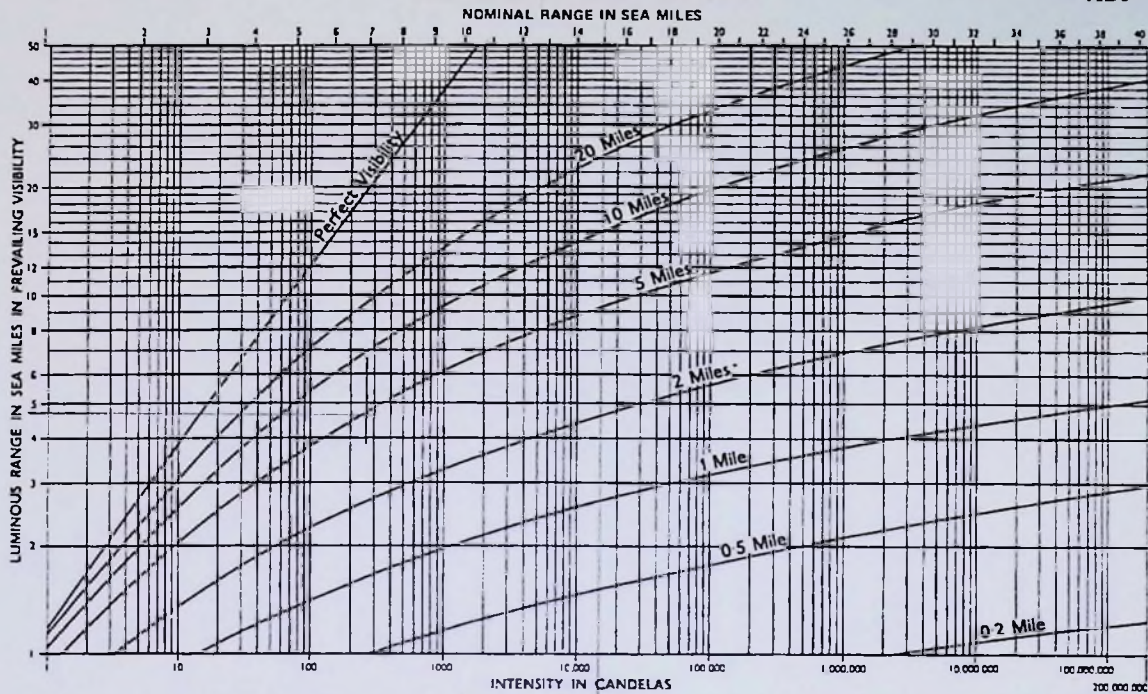 NOMINAL RANGE IN SEA MILES
1 2 3 4 5 6 7 8 9 10 12 14 16 18 19 20 22 24 26 28 29 30 32 34 36 38 40
LUMINOUS RANGE IN SEA MILES IN PREVAILING VISIBILITY
50
40
30
20
15
12
10
8
6
5
4
3
2
1
Perfect Visibility
20 Miles
10 Miles
5 Miles
2 Miles
1 Mile
0·5 Mile
0·2 Mile
1 10 100 1000 10,000 100,000 1,000,000 10,000,000 100,000,000
200,000,000
INTENSITY IN CANDELAS